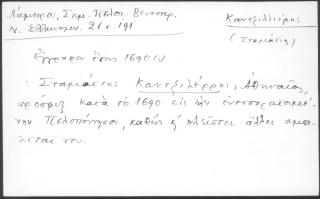 Λάμπρου, Σημ. Πελοπ. Βενετοκρ.
Ν. Ελληνομν. 21 σ. 191
Καντζιλιέρης
(Σταμάτιος)
Έγγραφον έτους 1690(;)
: Σταμάτιος Καντζιλιέρης, Αθηναίος,
πρόσφυξ κατά το 1690 εις την
την Πελοπόννησον, καθώς κ' πλείστοι άλλοι